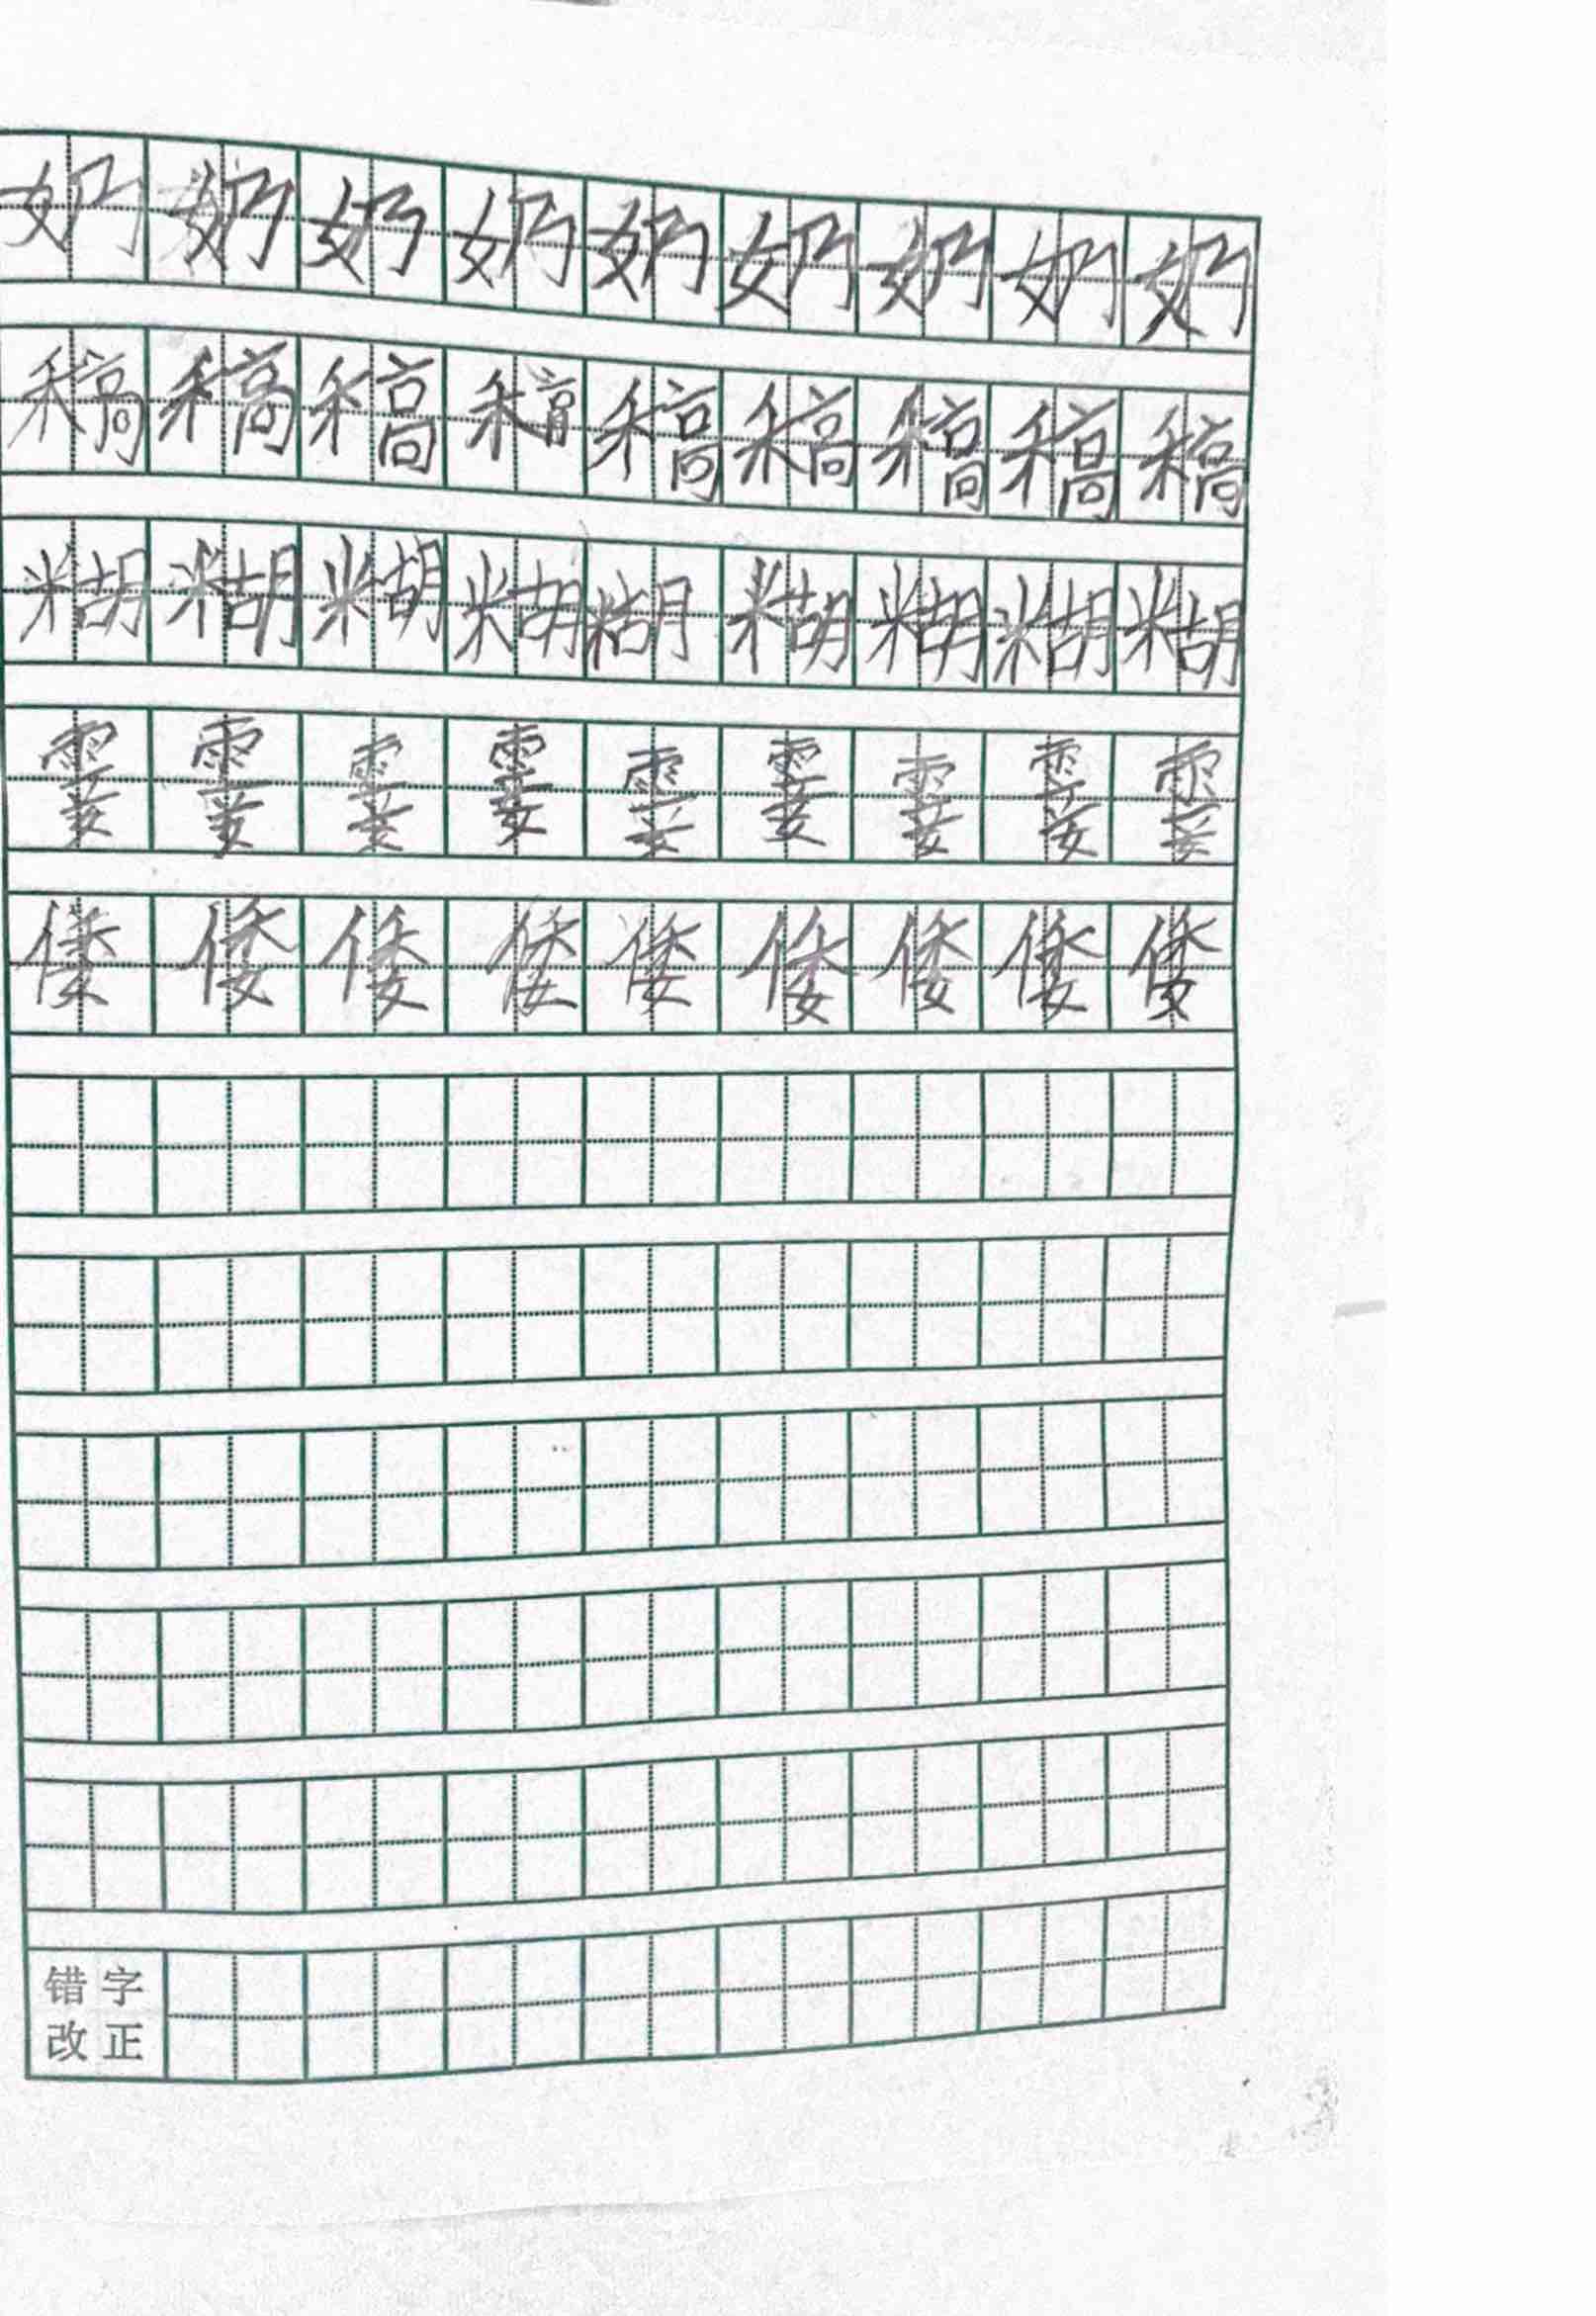 奶奶奶奶奶奶奶奶奶
稿稿稿稿稿稿稿稿稿
糊糊糊糊糊糊糊糊糊
霎霎霎霎霎霎霎霎霎
倭倭倭倭倭倭倭倭倭
错字
改正